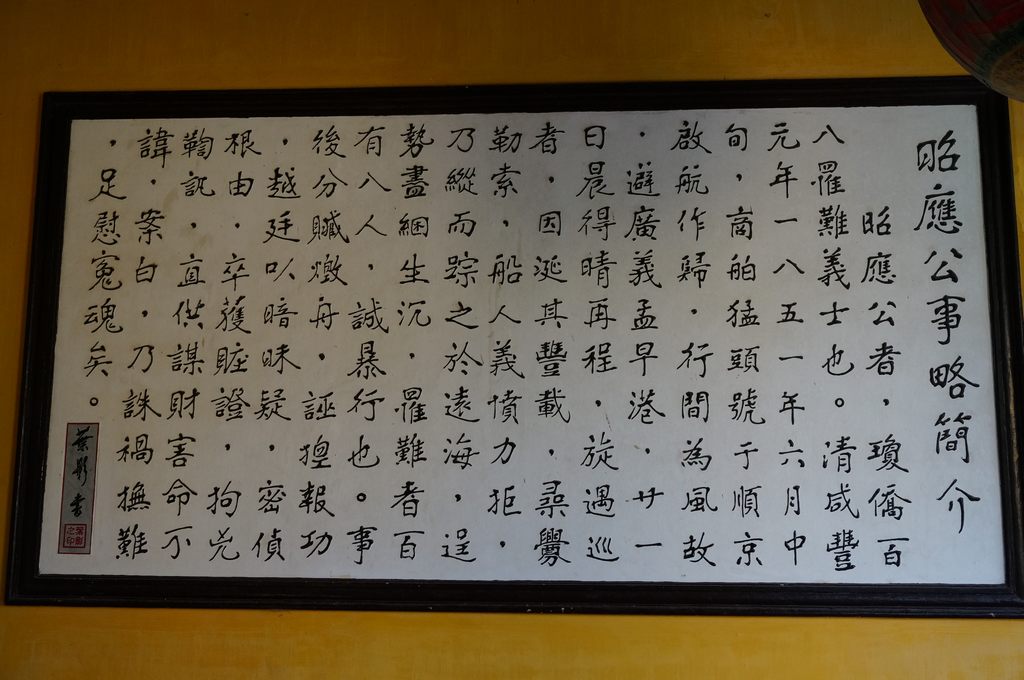 昭應公事略簡介
昭應公者,瓊僑百
八罹難義士也。清咸豐
元年一八五一年六月中
旬,商舶猛頭號于順京
啟航作歸,行間為風故
,避廣義孟早港,廿一
日晨得晴再程,旋遇巡
者,因涎其豐載,尋釁
勒索,船人義憤力拒,
乃縱而踪之於遠海,逞
勢盡綑生沉,罹難者百
有八人,誠暴行也。事
後分贓燬舟,誣捏報功
,越廷以暗昧疑,密偵
根由,卒獲賍證,拘兇
鞫訊,直供謀財害命不
諱,案白,乃誅禍撫難
,足慰寃魂矣。
葉彰書